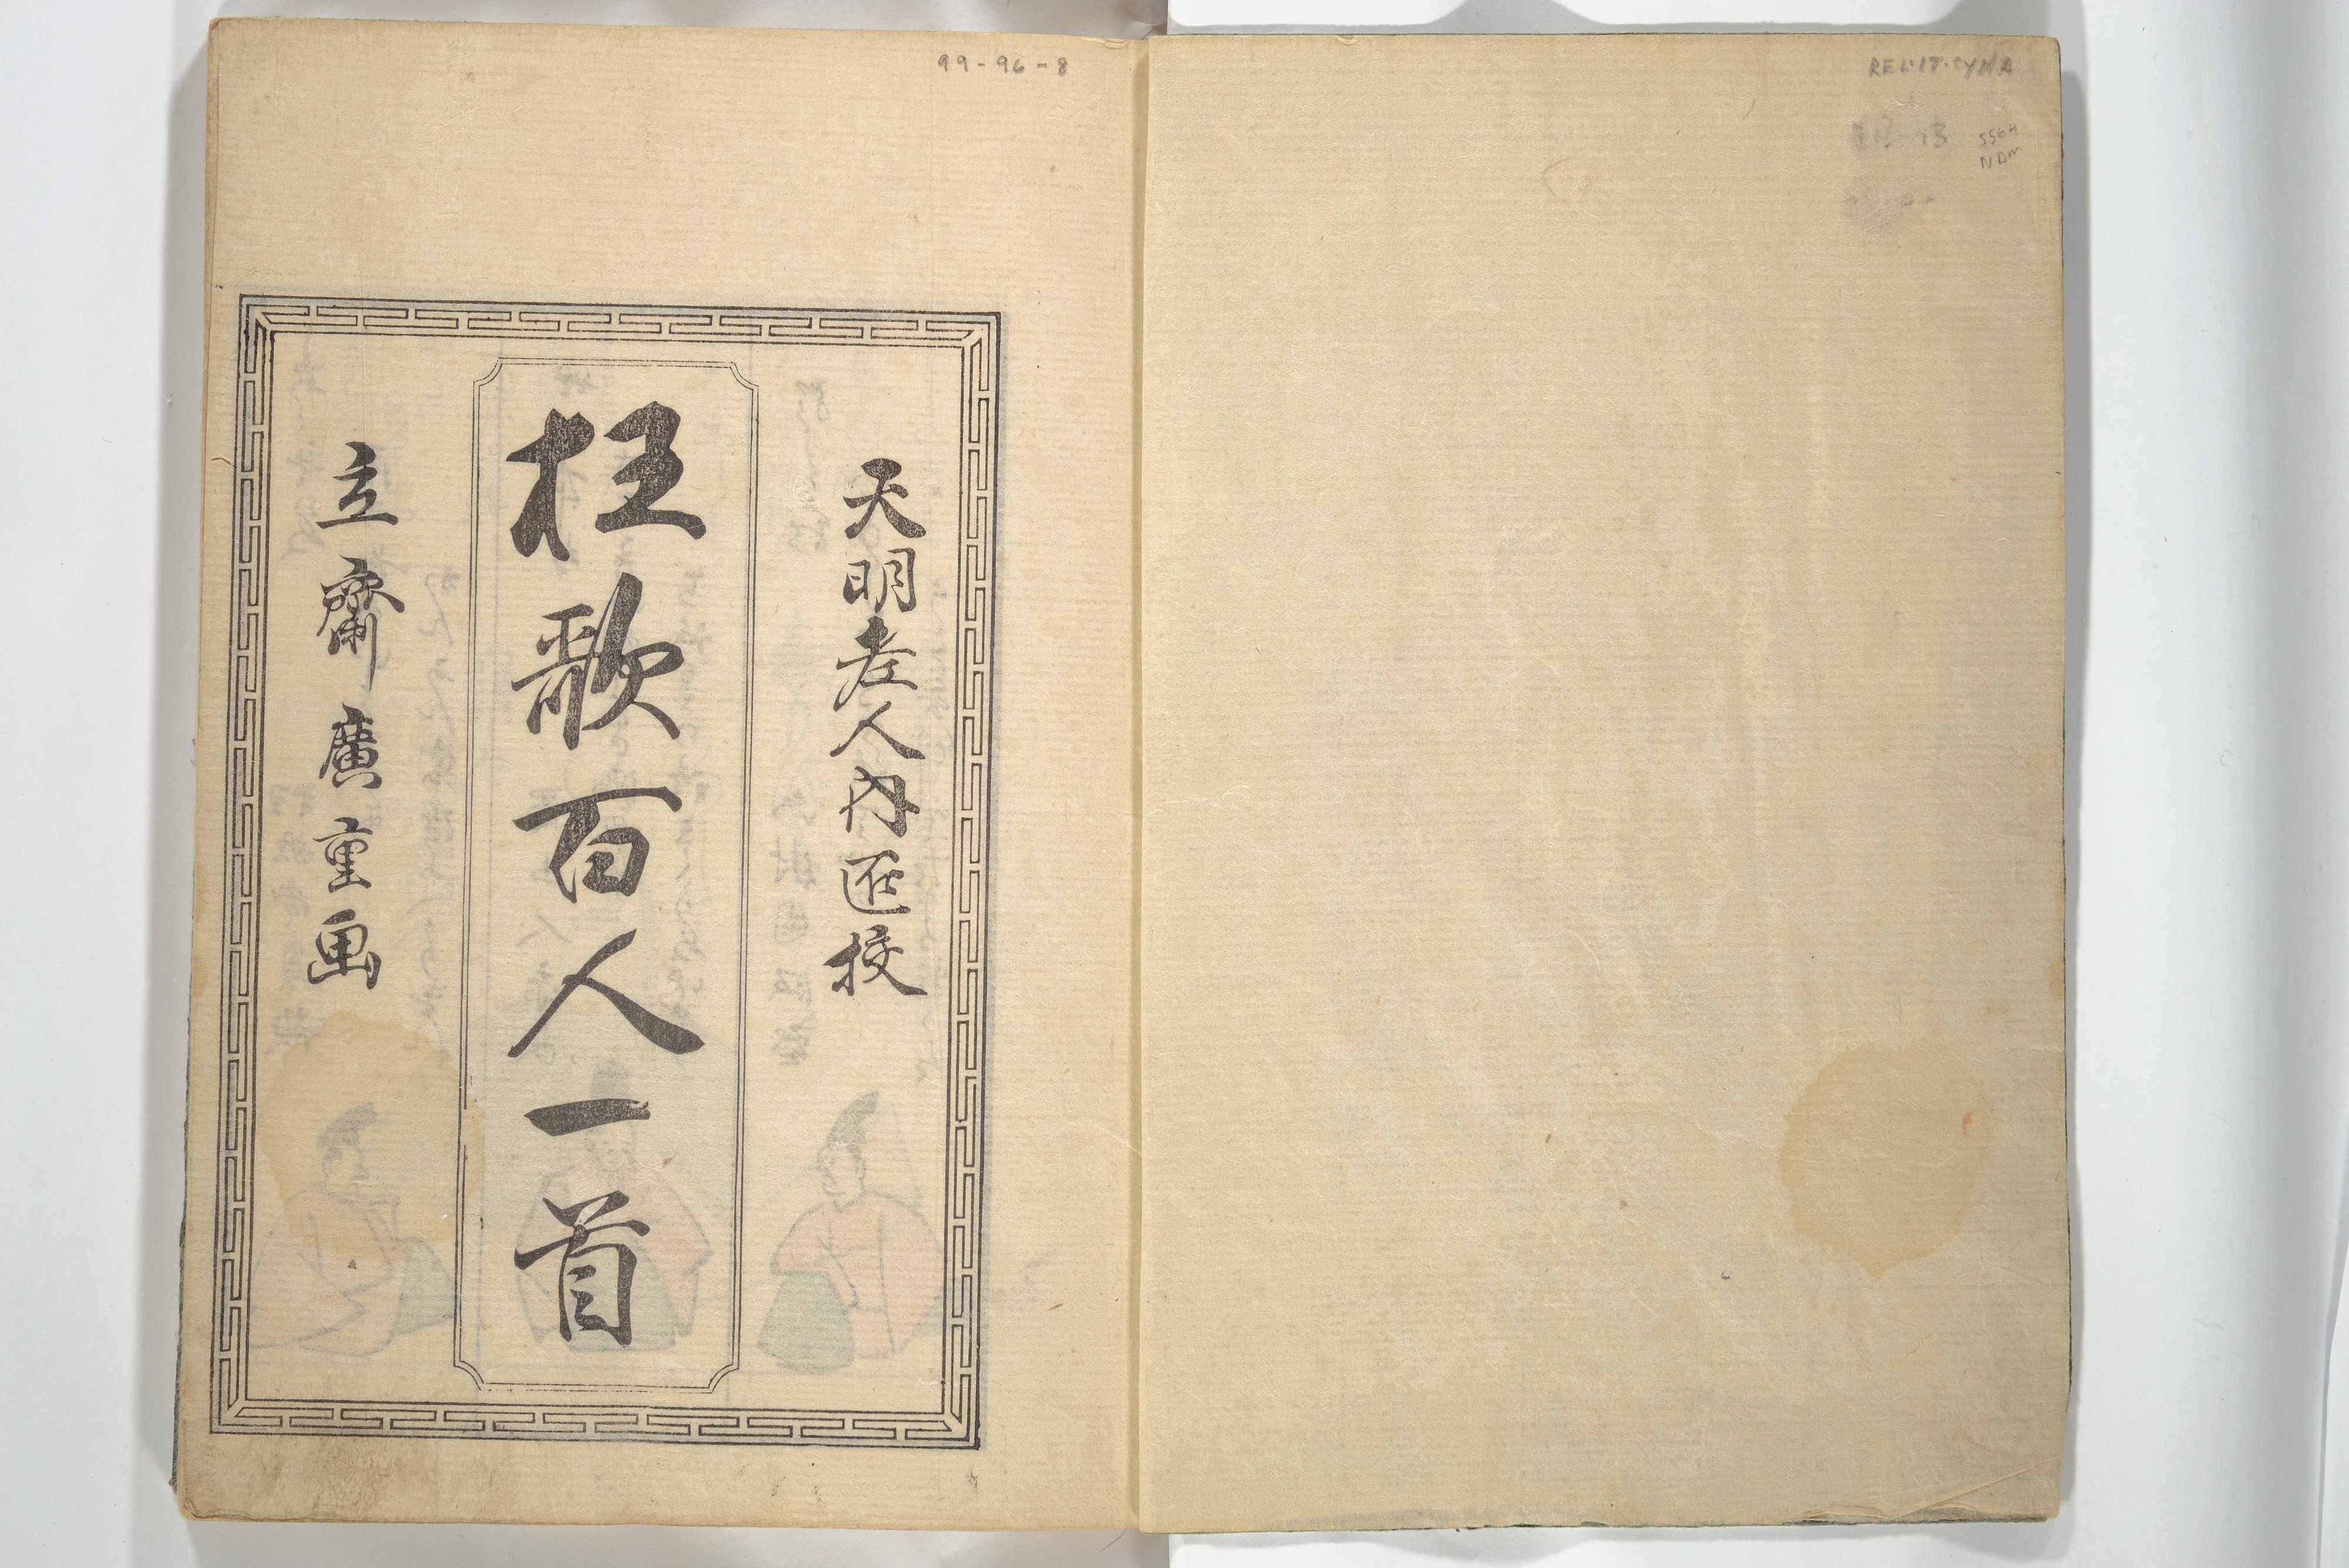 天明老人内匠校
狂歌百人一首
立齋廣重画
99-96-8
5564
NDM